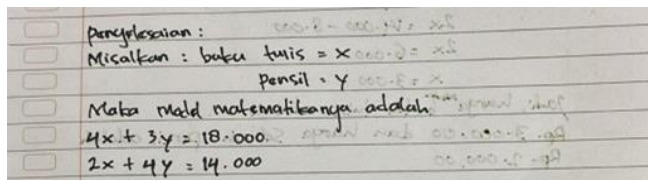 Penyelesaian :
Misalkan : buku tulis = x
pensil = y
Maka model matematikanya adalah
4x + 3y = 18.000
2x + 4y = 14.000